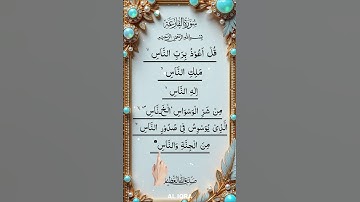 سُورَةُ الْقَارِعَة
بِسْمِ اللهِ الرَّحْمٰنِ الرَّحِيْمِ
قُلْ اَعُوْذُ بِرَبِّ النَّاسِ
مَلِكِ النَّاسِ
اِلٰهِ النَّاسِ
مِنْ شَرِّ الْوَسْوَاسِ الْخَنَّاسِ
الَّذِیْ یُوَسْوِسُ فِیْ صُدُوْرِ النَّاسِ
مِنَ الْجِنَّةِ وَالنَّاسِ
صَدَقَ اللهُ الْعَظِیْم
AL IQRA